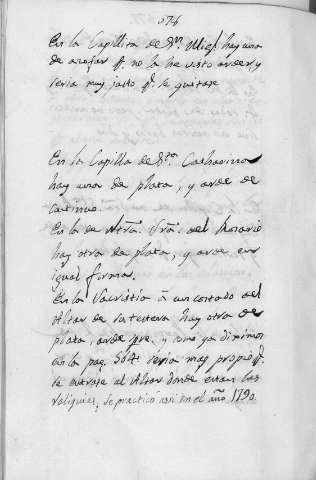 574
En la Capillita de Sn. Migl. hay una
de azofar q. no la he visto arder, y
seria muy justo q. se quitase
En la Capilla de Sta. Catharina
hay una de plata, y arde de
continuo.
En la de Ntra. Sra. del Rosario
hay otra de plata, y arde en
igual forma.
En la Sacristia à un costado del
Altar de la testera hay otra de
plata, arde spre. y como ya diximos
en la pag. 564 seria mas propio q.
se entrase al Altar donde estan las
reliquias, se practicó asi en el año 1790.